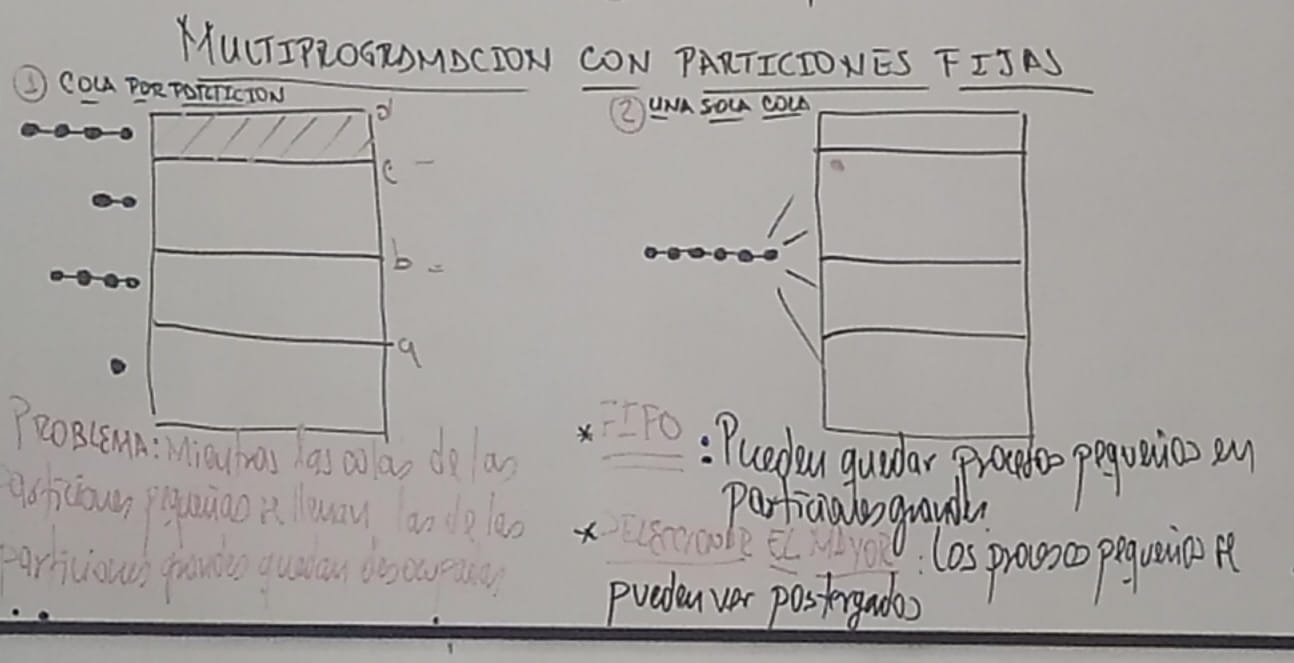 MULTIPROGRAMACION CON PARTICIONES FIJAS
① COLA POR PORTICION
d
c -
b =
a
PROBLEMA: Mientras las colas de las
particiones pequeñas se llenan las de las
particiones grandes quedan desocupadas
② UNA SOLA COLA
* FIFO : Pueden quedar procesos pequeños en
particiales grandes
* SELECCIONAR EL MAYOR : Los procesos pequeños se
pueden ver postergados